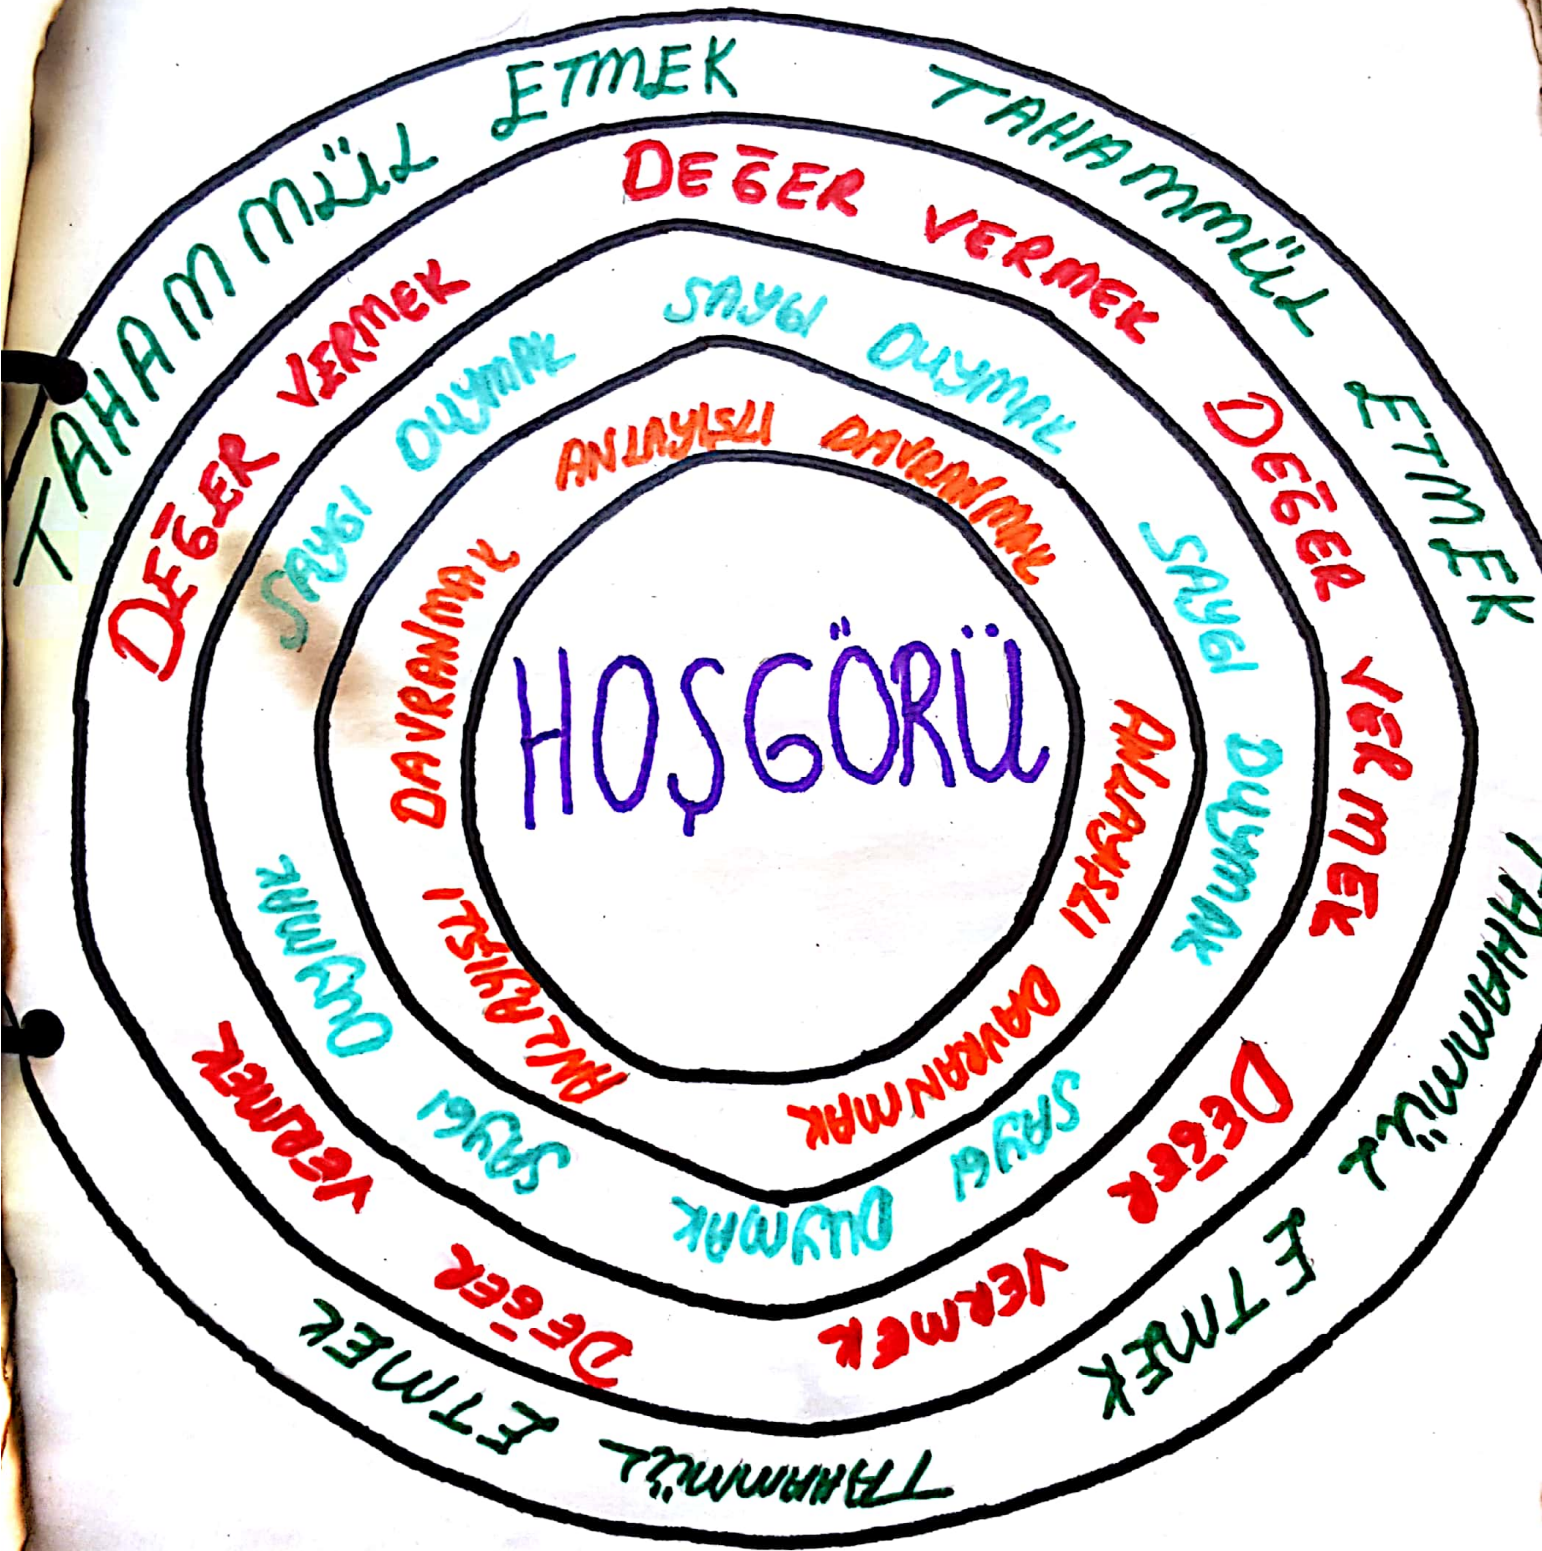 TAHAMMÜL ETMEK
TAHAMMÜL ETMEK
TAHAMMÜL ETMEK
TAHAMMÜL ETMEK
DEĞER VERMEK
DEĞER VERMEK
DEĞER VERMEK
DEĞER VERMEK
DEĞER VERMEK
SAYGI DUYMAK
SAYGI DUYMAK
SAYGI DUYMAK
SAYGI DUYMAK
SAYGI DUYMAK
ANLAYIŞLI DAVRANMAK
ANLAYIŞLI DAVRANMAK
ANLAYIŞLI DAVRANMAK
HOŞGÖRÜ